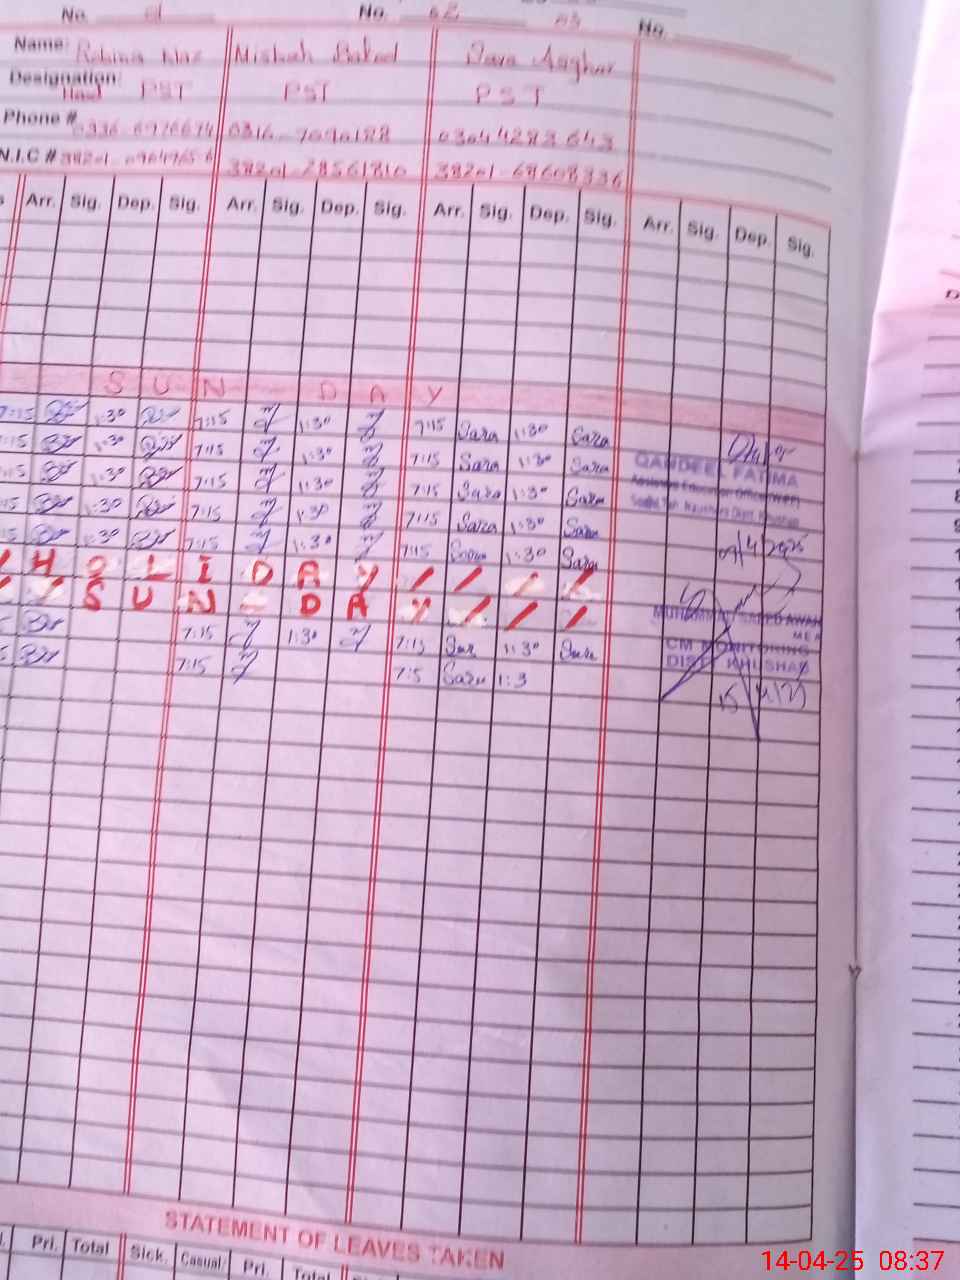 No. 01 No. 02 03 No.
Name: Robina Naz Misbah Batool Sara Asghar
Designation: Head PST PST PST
Phone # 0336-6976674 0316-7090188 03044283643
N.I.C # 38201-0964965 6 38201-28561810 38201-68608336
Arr. Sig. Dep. Sig. Arr. Sig. Dep. Sig. Arr. Sig. Dep. Sig. Arr. Sig. Dep. Sig.
S U N D A Y
7:15 1:30 7:15 1:30 7:15 Sara 1:30 Sara
:15 1:30 7:15 1:30 7:15 Sara 1:30 Sara
:15 1:30 7:15 1:30 7:15 Sara 1:30 Sara
:15 1:30 7:15 1:30 7:15 Sara 1:30 Sara
:15 1:30 7:15 1:30 7:15 Sara 1:30 Sara
QANDEEL FATIMA
09/4/2025
H O L I D A Y / / / /
S U N - D A Y / / /
7:15 1:30 7:15 Sara 1:30 Sara
7:15 7:5 Sara 1:3
MUHAMMAD SAEED AWAN
MEA
CM MONITORING
DIST. KHUSHAB
15/4/25
STATEMENT OF LEAVES TAKEN
Pri. Total Sick. Casual Pri. Total
14-04-25 08:37